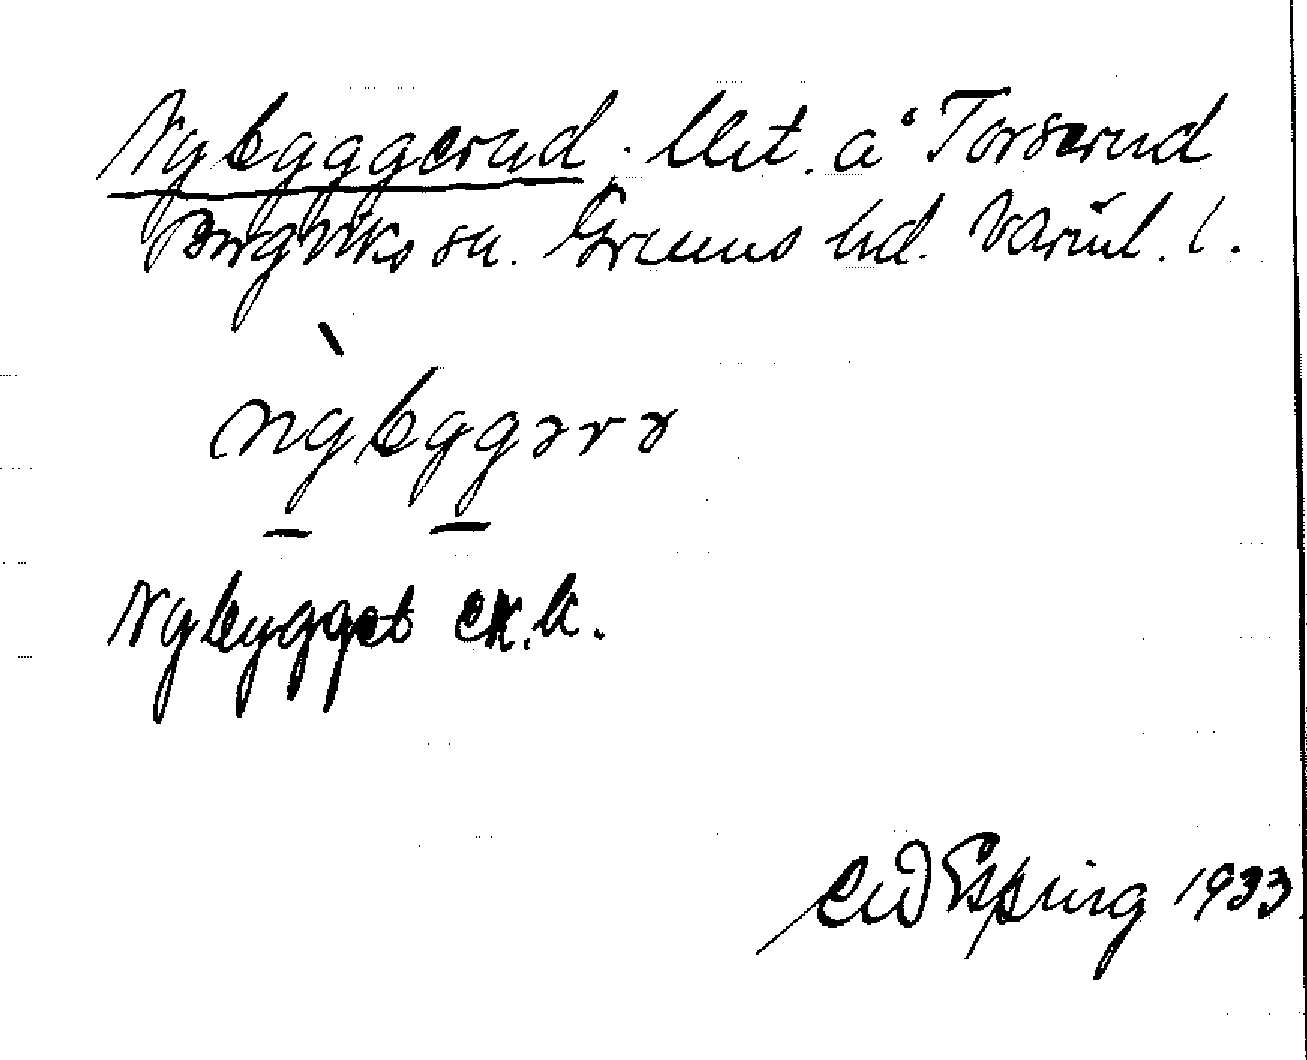 Nybyggerud. Utt. å Torserud
Borgviks sn. Grums hd. Värml. l.
nybyggərə
Nybygget ek.k.
1933